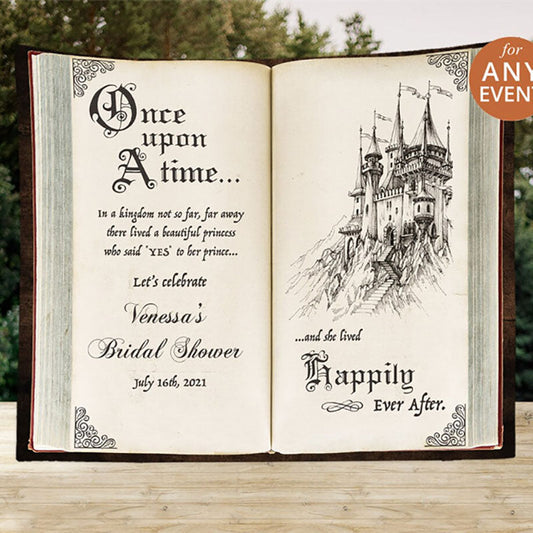 for
ANY
EVENT
Once
upon
A time...
In a kingdom not so far, far away
there lived a beautiful princess
who said "YES" to her prince...
Let's celebrate
Venessa's
Bridal Shower
July 16th, 2021
...and she lived
Happily
Ever After.